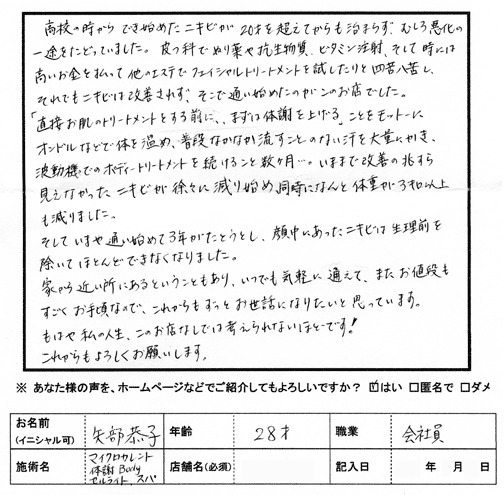 高校の時から でき始めたニキビが 20才を超えてからも治まらず むしろ悪化の
一途をたどっていました。皮フ科でぬり薬や抗生物質、ビタミン注射、そして時には
高いお金を払って他のエステでフェイシャルトリートメントを試したりと四苦八苦し、
それでもニキビは改善されず、そこで通い始めたのがこのお店でした。
「直接お肌のトリートメントをする前に、、まずは体謝を上げる」ことをモットーに
オンドルなどで体を温め、普段なかなか流すことのない汗を大量にかき、
波動機でのボディートリートメントを続けること数ヶ月…。いままで改善の兆すら
見えなかったニキビが徐々に減り始め、同時になんと体重が3キロ以上
も減りました。
そしていまや通い始めて3年がたとうとし、顔中にあったニキビは生理前を
除いてほとんどできなくなりました。
家から近い所にあるということもあり、いつでも気軽に通えて、またお値段も
すごくお手頃なので、これからもずっとお世話になりたいと思っています。
もはや私の人生、このお店なしでは考えられないほどです!
これからもよろしくお願いします。
※ あなた様の声を、ホームページなどでご紹介してもよろしいですか? ☑はい □匿名で □ダメ
お名前 (イニシャル可) 矢部恭子 年齢 28才 職業 会社員
施術名 マイクロカレント 体謝 Body セルライト、スパ 店舗名(必須) 記入日 年 月 日